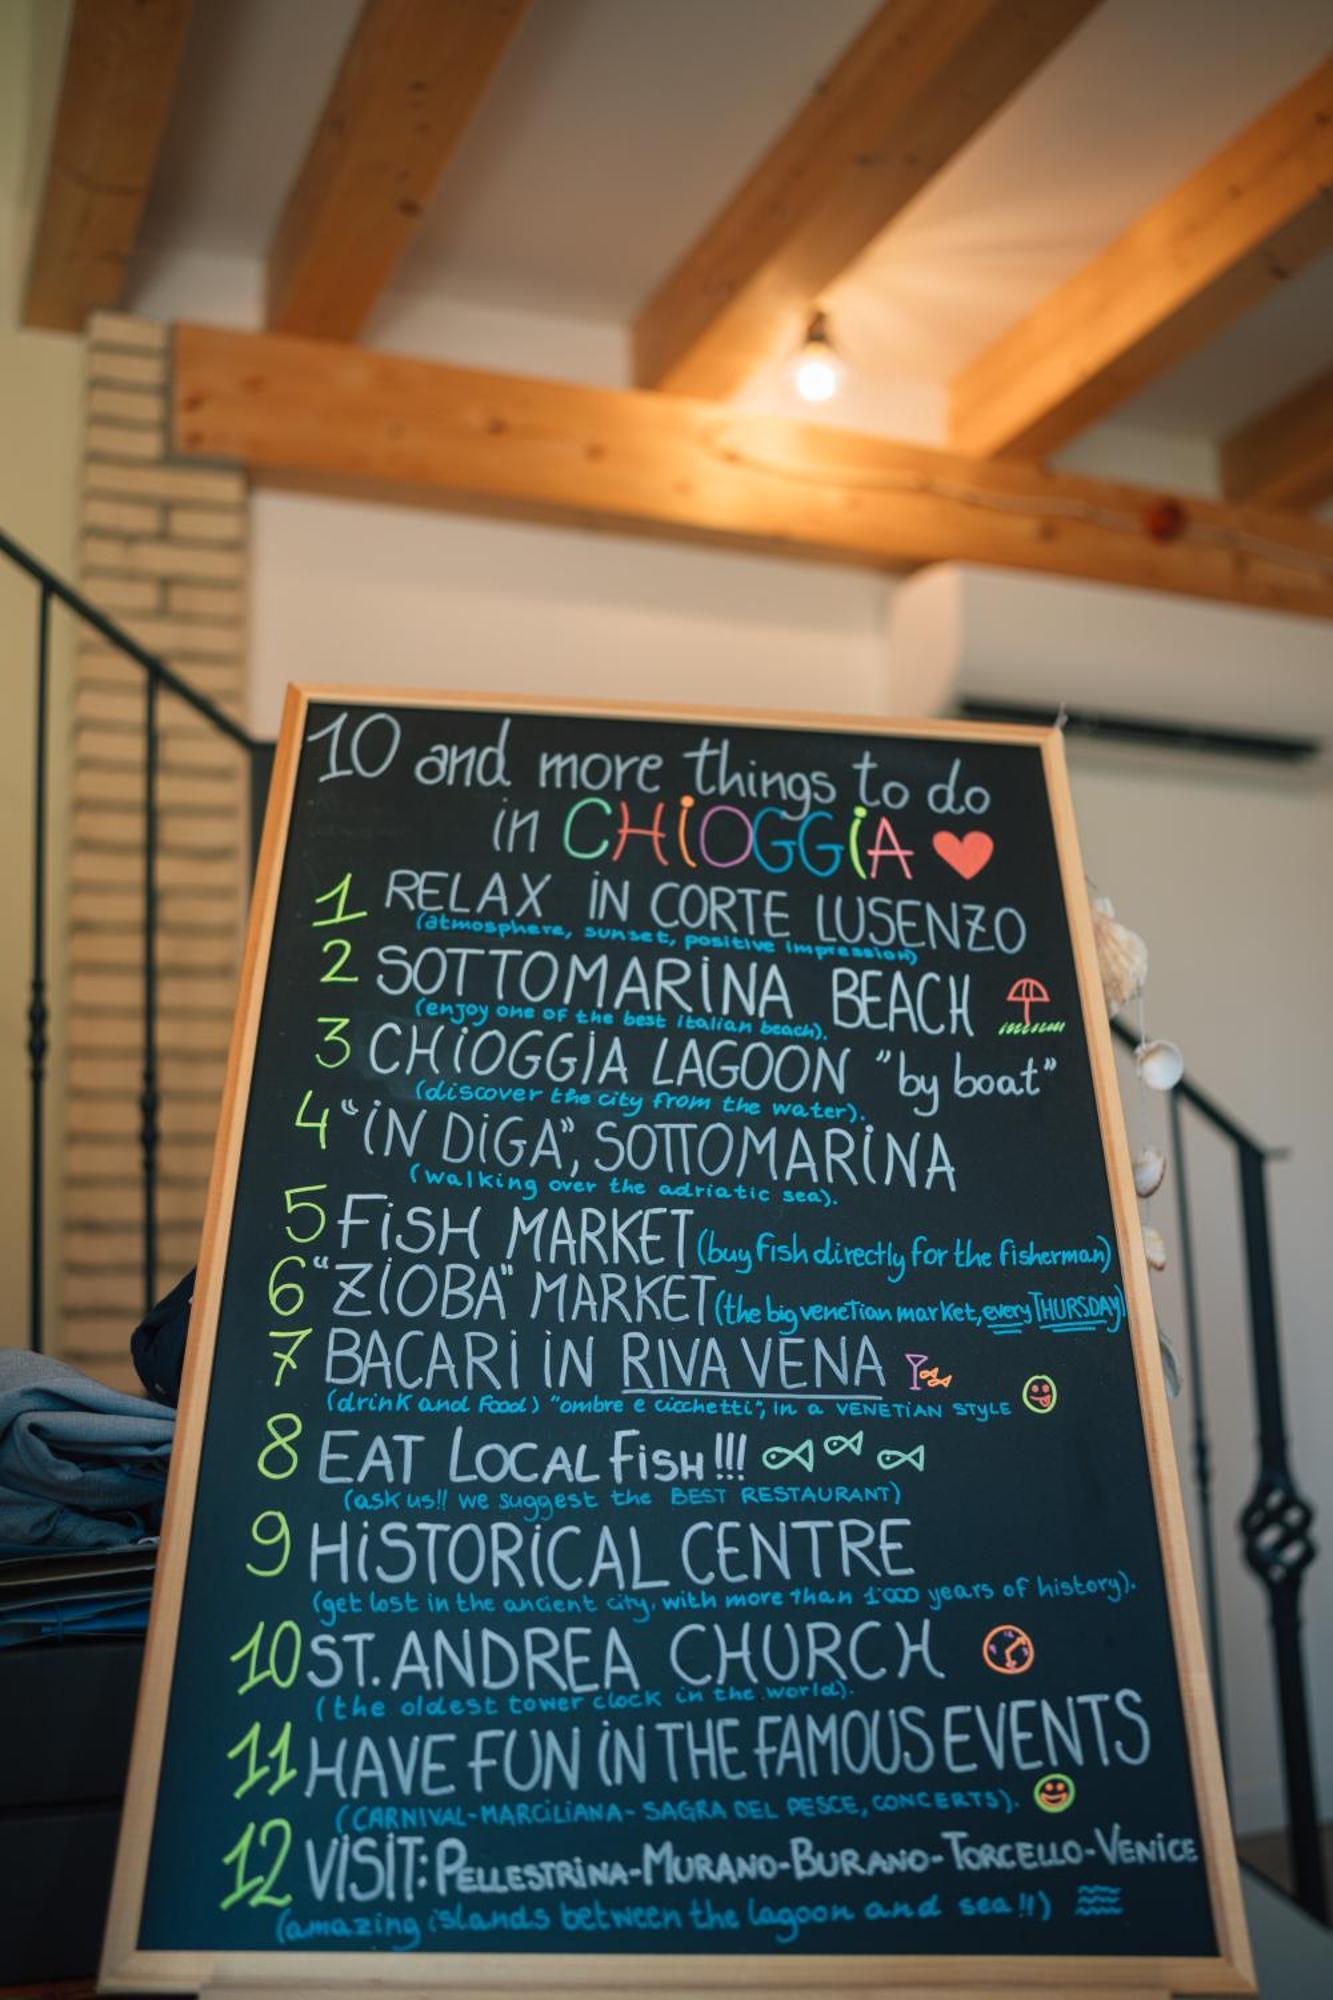 10 and more things to do
in CHiOGGiA
1 RELAX iN CORTE LUSENZO
(atmosphere, sunset, positive impression)
2 SOTTOMARiNA BEACH
(enjoy one of the best italian beach).
3 CHiOGGiA LAGOON "by boat"
(discover the city from the water).
4 "iN DiGA", SOTTOMARiNA
(walking over the adriatic sea).
5 FiSH MARKET (buy fish directly for the fisherman)
6 "ZiOBA" MARKET (the big venetian market, every THURSDAY)
7 BACARi iN RIVA VENA
(drink and food) "ombre e cicchetti", in a VENETiAN STYLE
8 EAT LOCAL FiSH!!!
(ask us!! we suggest the BEST RESTAURANT)
9 HiSTORiCAL CENTRE
(get lost in the ancient city, with more than 1'000 years of history).
10 ST. ANDREA CHURCH
(the oldest tower clock in the world).
11 HAVE FUN iN THE FAMOUS EVENTS
(CARNIVAL-MARCiLiANA- SAGRA DEL PESCE, CONCERTS).
12 ViSiT: PELLESTRiNA-MURANO-BURANO-TORCELLO-VENiCE
(amazing islands between the lagoon and sea!!)